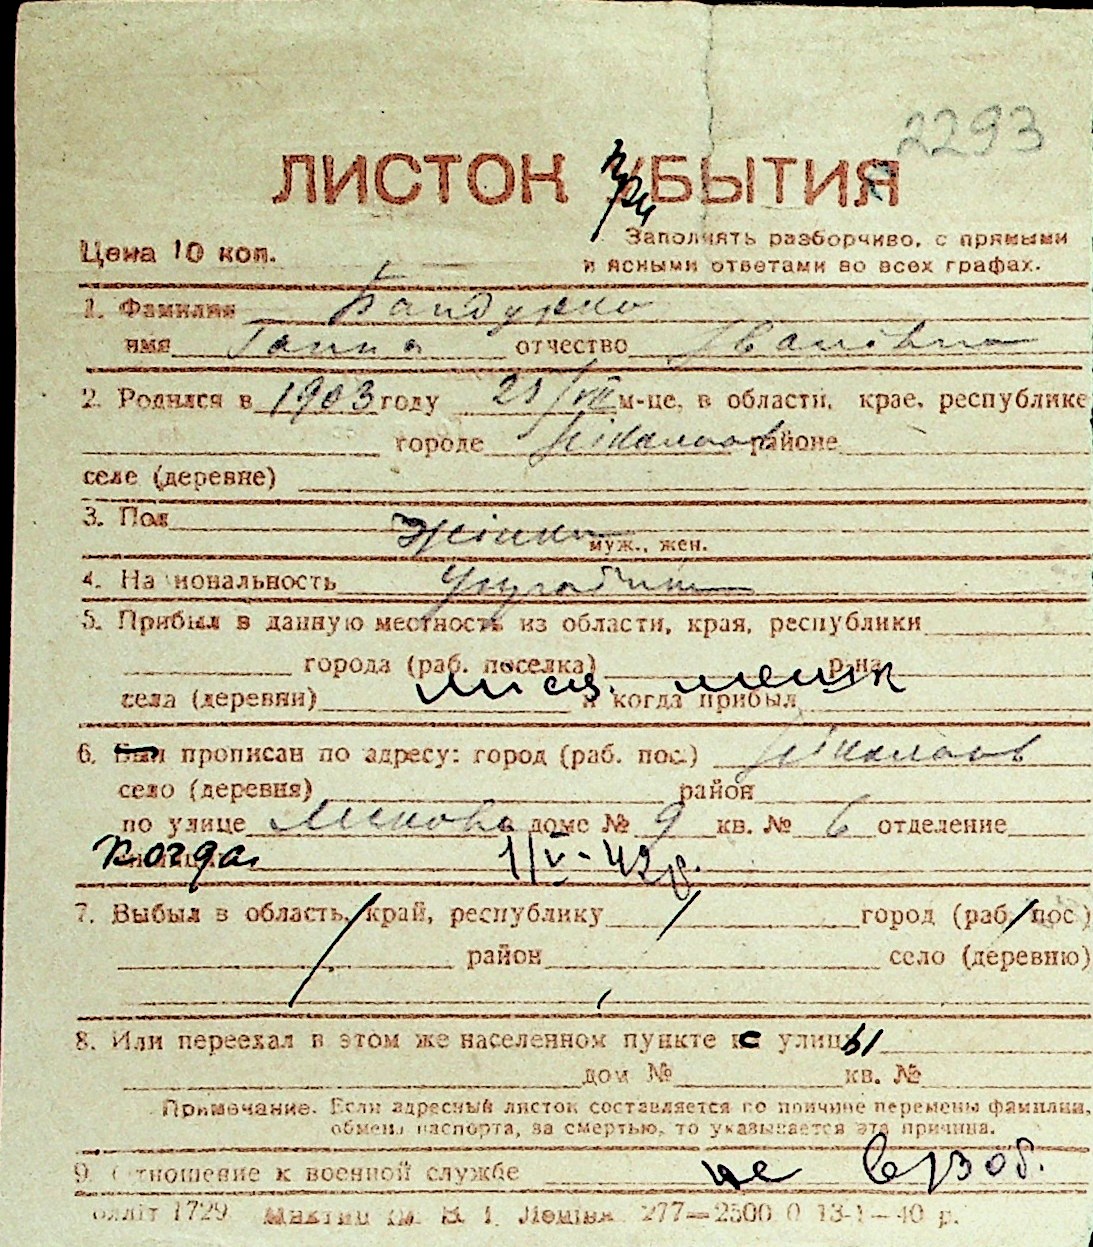 2293
ЛИСТОК при БЫТИЯ
Цена 10 коп.
Заполнять разборчиво, с прямыми
и ясными ответами во всех графах.
1. Фамилия
имя Ганна отчество Іванівна
2. Родился в 1903 году 25/VII м-це, в области, крае, республике
городе Ніколаєв районе
селе (деревне)
3. Пол Жінка
муж., жен.
4. Национальность
5. Прибыл в данную местность из области, края, республики
города (раб. поселка) р-на
села (деревни) мисц. мешк и когда прибыл
6. Был прописан по адресу: город (раб. пос.) Ніколаєв
село (деревня) район
по улице доме № 9 кв. № 6 отделение
когда 1/V-42 г.
7. Выбыл в область, край, республику город (раб. пос.)
район село (деревню)
8. Или переехал в этом же населенном пункте с улицы
дом № кв. №
Примечание. Если адресный листок составляется по причине перемены фамилии,
обмена паспорта, за смертью, то указывается эта причина.
9. Отношение к военной службе не в/зоб.
облліт 1729 277—2500 0 13-1—40 р.